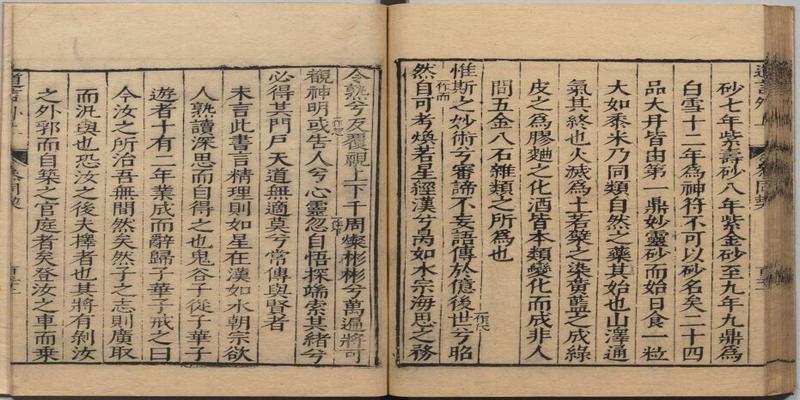 砂七年紫壽砂八年紫金砂至九年九鼎爲
白雪十二年爲神符不可以砂名矣二十四
品大丹皆由第一鼎妙靈砂而始日食一粒
大如黍米乃同類自然之藥其始也山澤通
氣其終也火滅爲土若蘗之染黃藍之成綠
皮之爲膠麯之化酒皆本類變化而成非人
問五金八石雜類之所爲也
惟斯之妙術兮審諦不妄語傳於億後世兮昭
然自可考煥若星經漢兮昺如水宗海思之務
令熟兮反覆視上下千周燦彬彬兮萬遍將可
觀神明或告人兮心靈忽自悟探端索其緒兮
必得其門戶天道無適莫兮常傳與賢者
末言此書言精理則如星在漢如水朝宗欲
人熟讀深思而自得之也鬼谷子從子華子
遊者十有二年業成而辭歸子華子戒之曰
今汝之所治吾無間然矣然子之志則廣取
而汎與也恐汝之後夫擇者也其將有剝汝
之外郛而自築之宮庭者矣登汝之車而乘